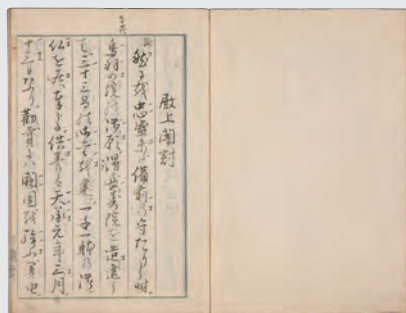 殿上闇討
然るを忠盛未ダ備前の守たりし時
鳥羽の院の御願得長寿院を造進し
て三十三間の御堂を建一千一躰の御
仏を居ゑ奉る供養は天承元年三月
十三日なり勧賞には闕国を